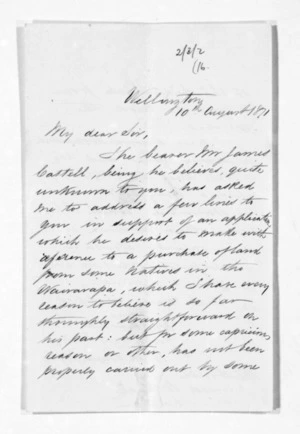 2/2/2
(16
Wellington
10th August 1871
My dear Sir,
The bearer Mr James
Cattell, being, he believes, quite
unknown to you, has asked
me to address a few lines to
you in support of an application
which he desires to make with
reference to a purchase of land
from some Natives in the
Wairarapa, which I have every
reason to believe is so far
thoroughly straightforward on
his part: but for some capricious
reason or other, has not been
properly carried out by some